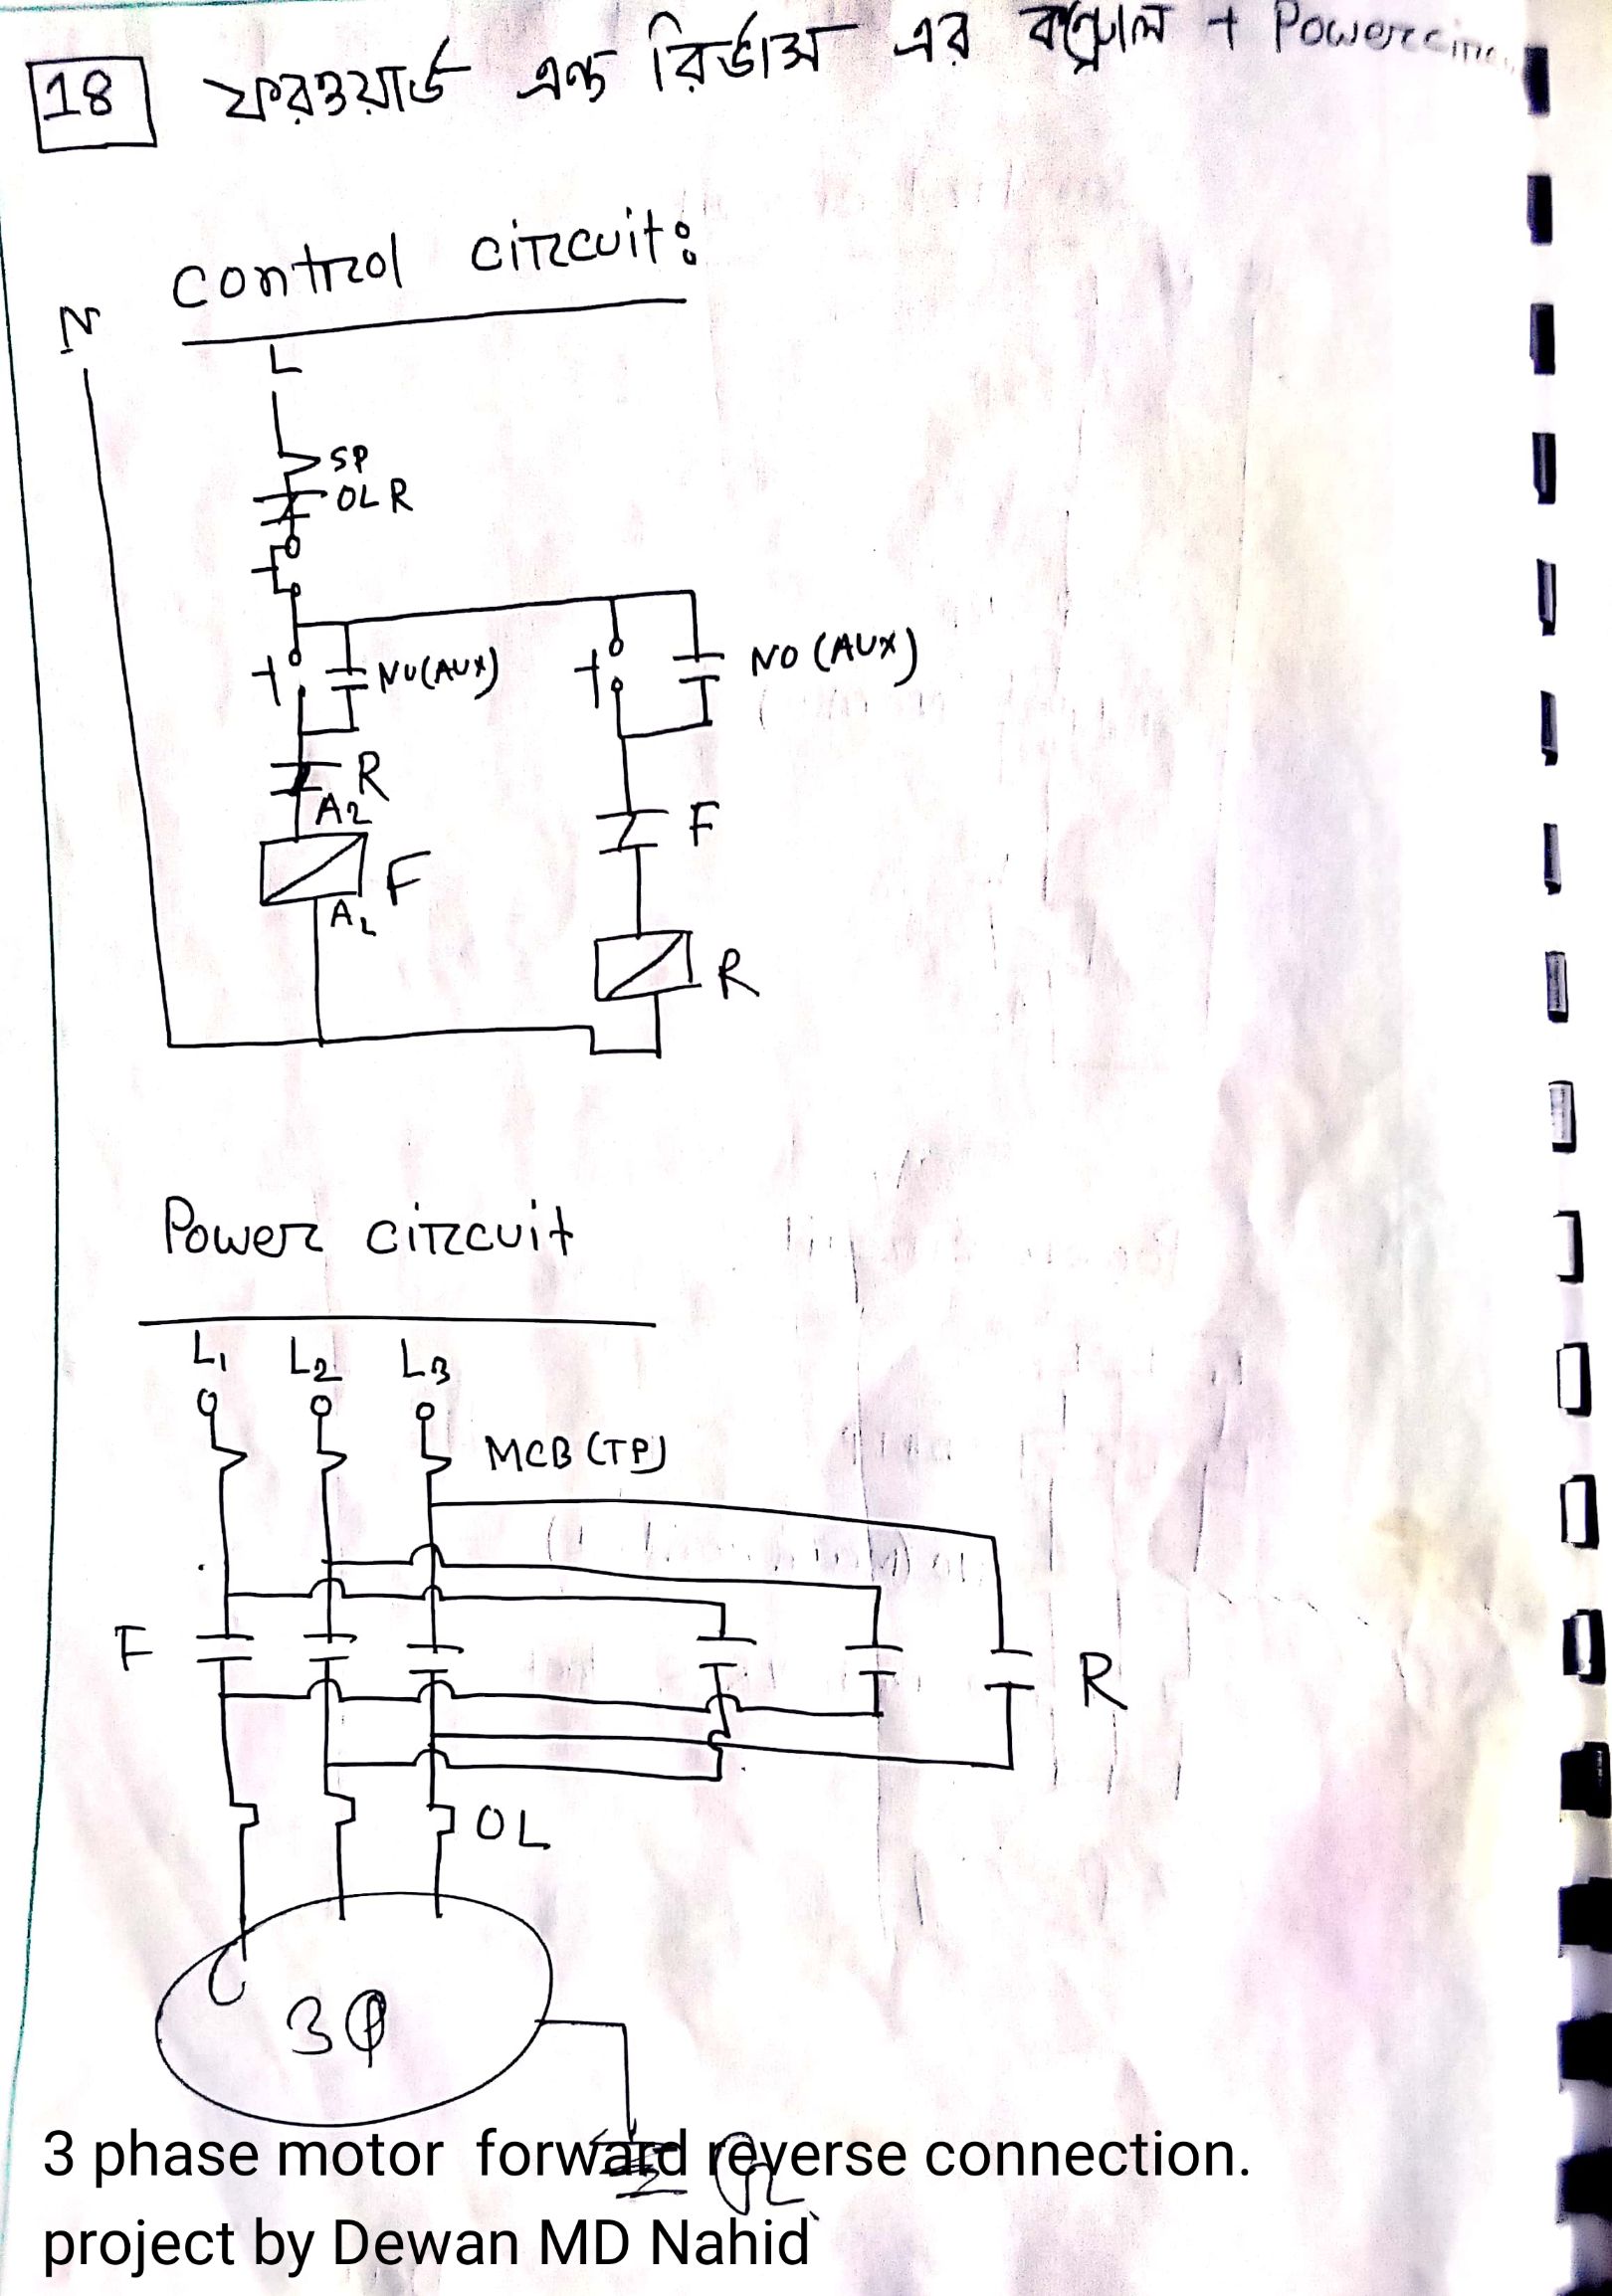 18 ফরওয়ার্ড এন্ড রিভার্স এর কন্ট্রোল + Power
control circuit:
N
L
SP
OLR
NO(AUX) NO (AUX)
R
A2
F
F
A2
R
Power circuit
L1 L2 L3
MCB (TP)
F R
OL
3Φ
3 phase motor forward reverse connection.
project by Dewan MD Nahid